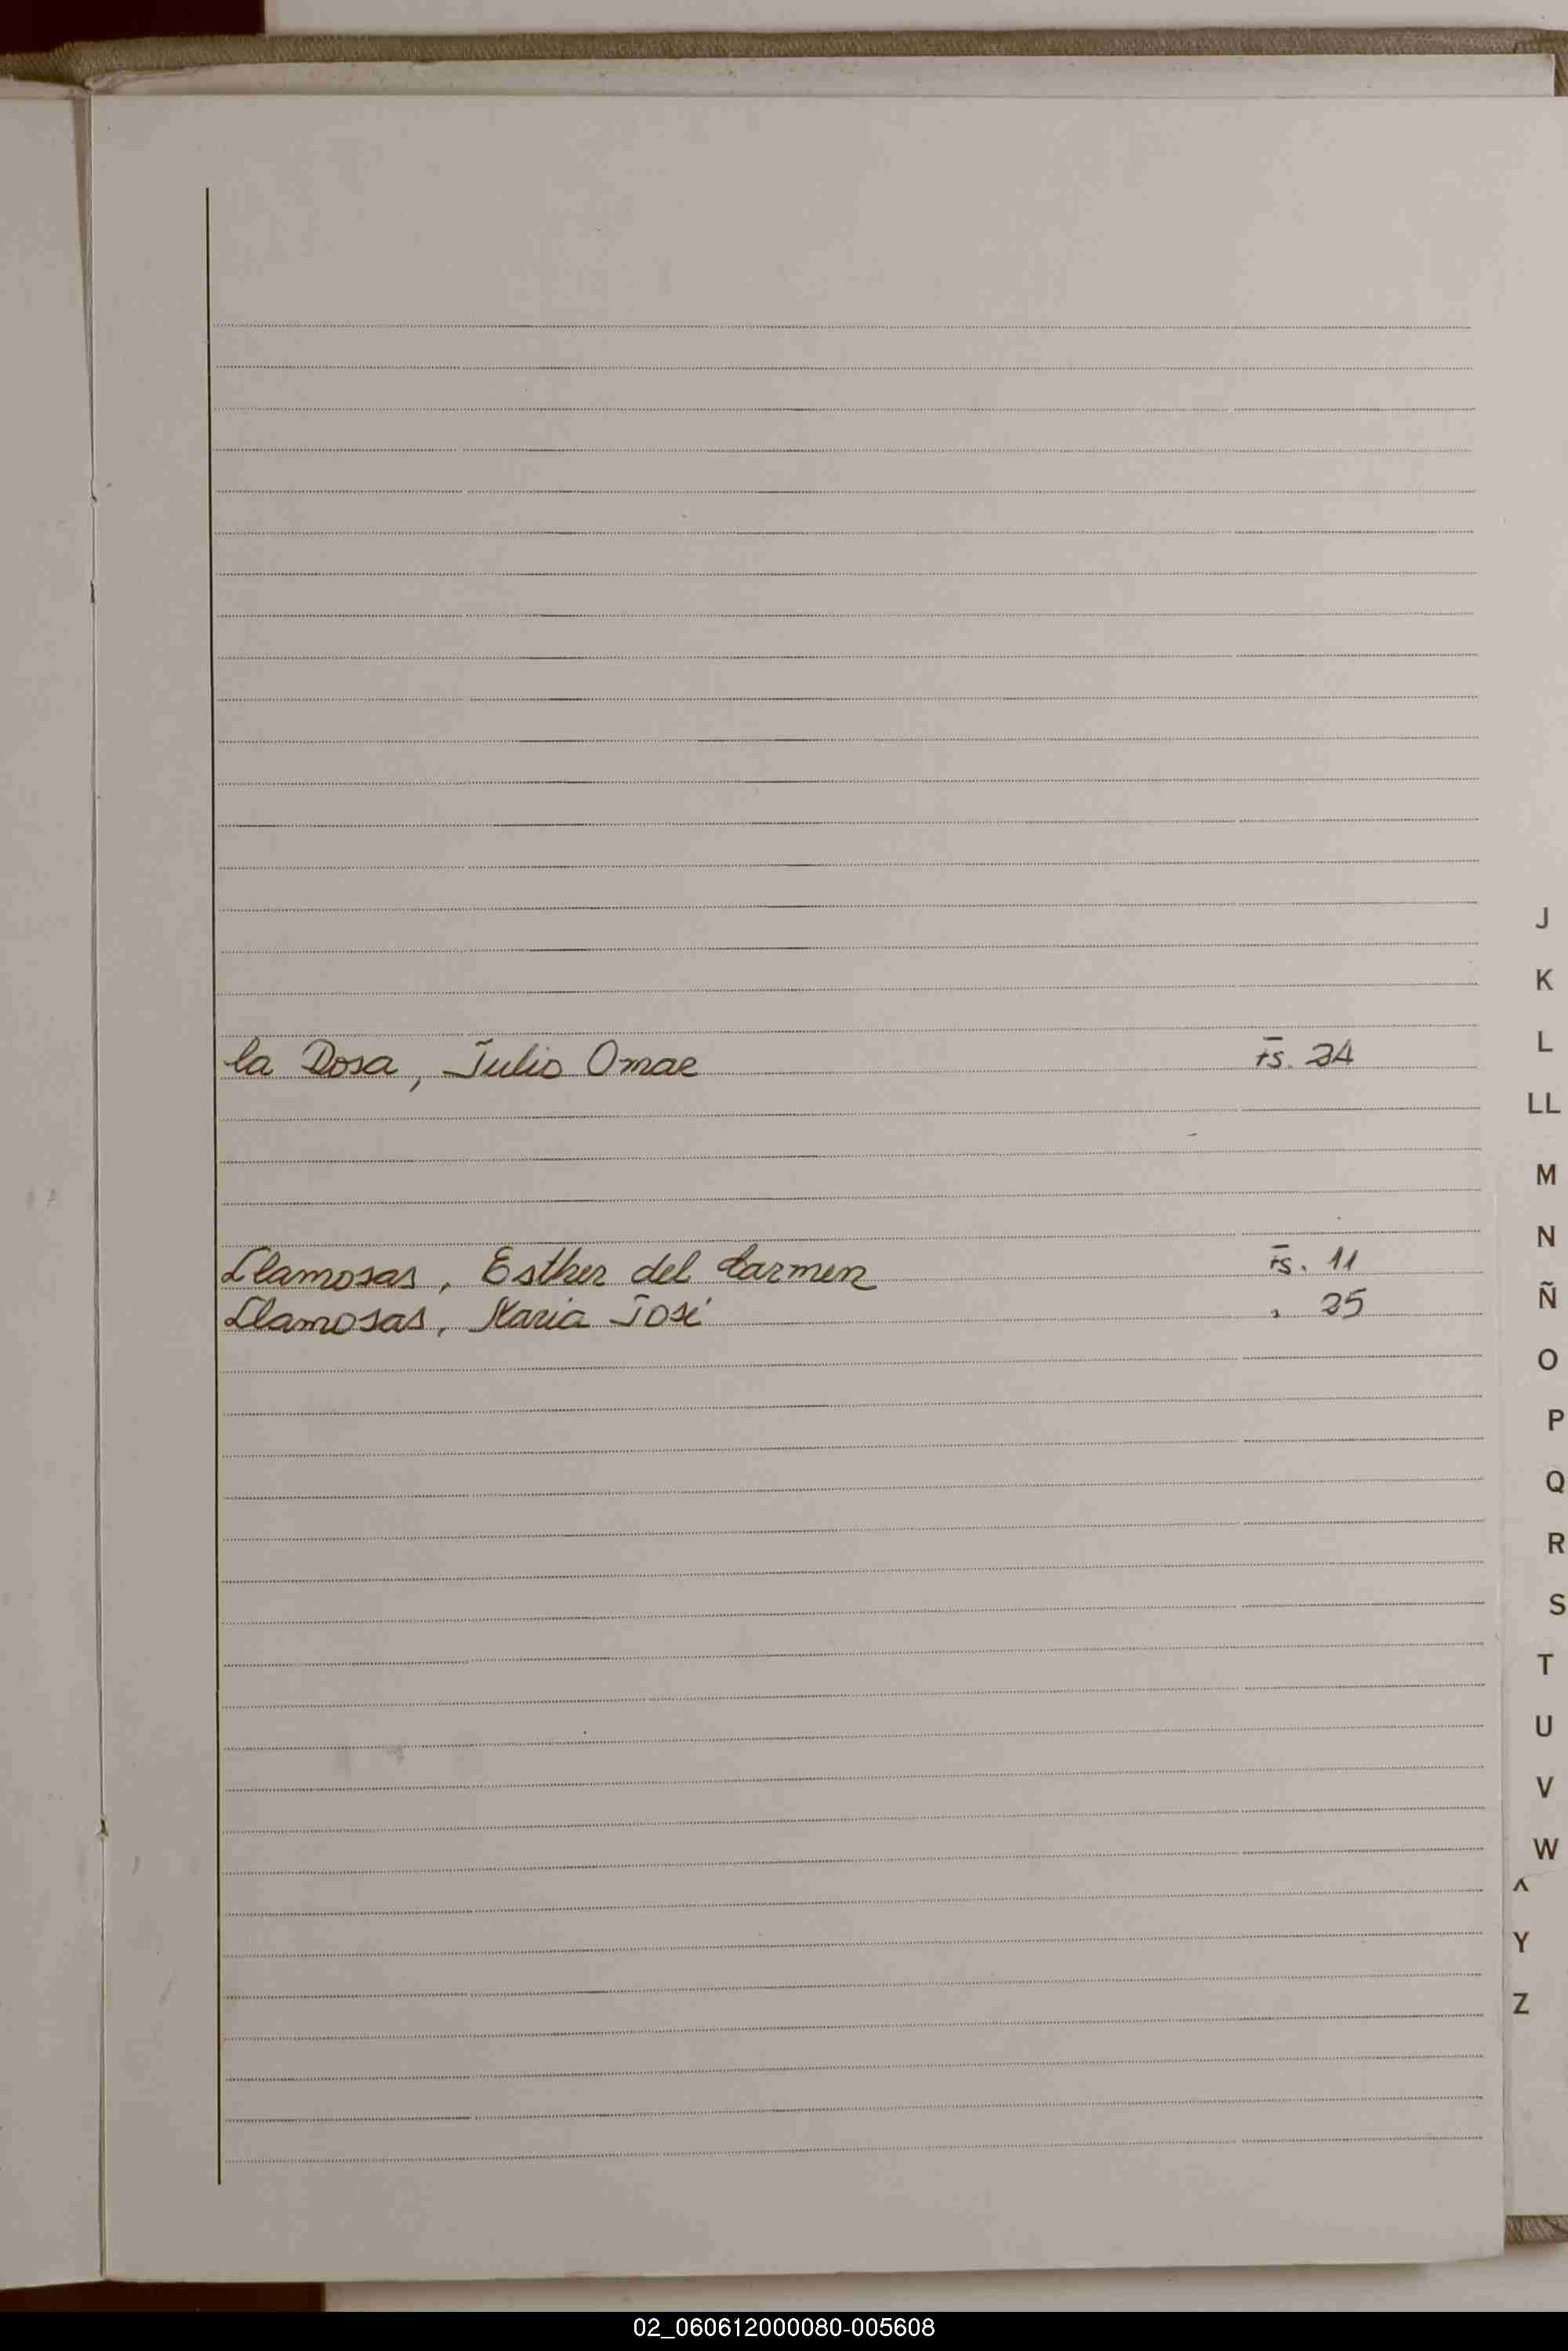 la Rosa, Julio Omar fs. 24
Llamosas, Esther del Carmen fs. 11
Llamosas, Maria José " 25
J
K
L
LL
M
N
Ñ
O
P
Q
R
S
T
U
V
W
Y
Z
02_060612000080-005608